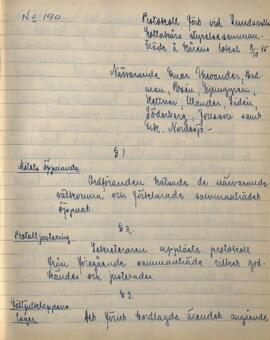 No 190
Protokoll förb vid Sundsvalls
styrelsesamman-
träde i Kårens lokal 2/10 45
Närvarande Einar
man, Rosén, Ljunggren,
Hellner, Ulander, Lidén,
Söderberg, Jonsson samt
§ 1.
Mötets Öppnande
Ordföranden hälsade de närvarande
välkomna och förklarade sammanträdet
öppnat.
§ 2.
Protokolljustering
Sekreteraren uppläste protokoll
från föregående sammanträde vilket god-
kändes och justerades.
§ 3.
Läger
Det förut bordlagda ärendet angående